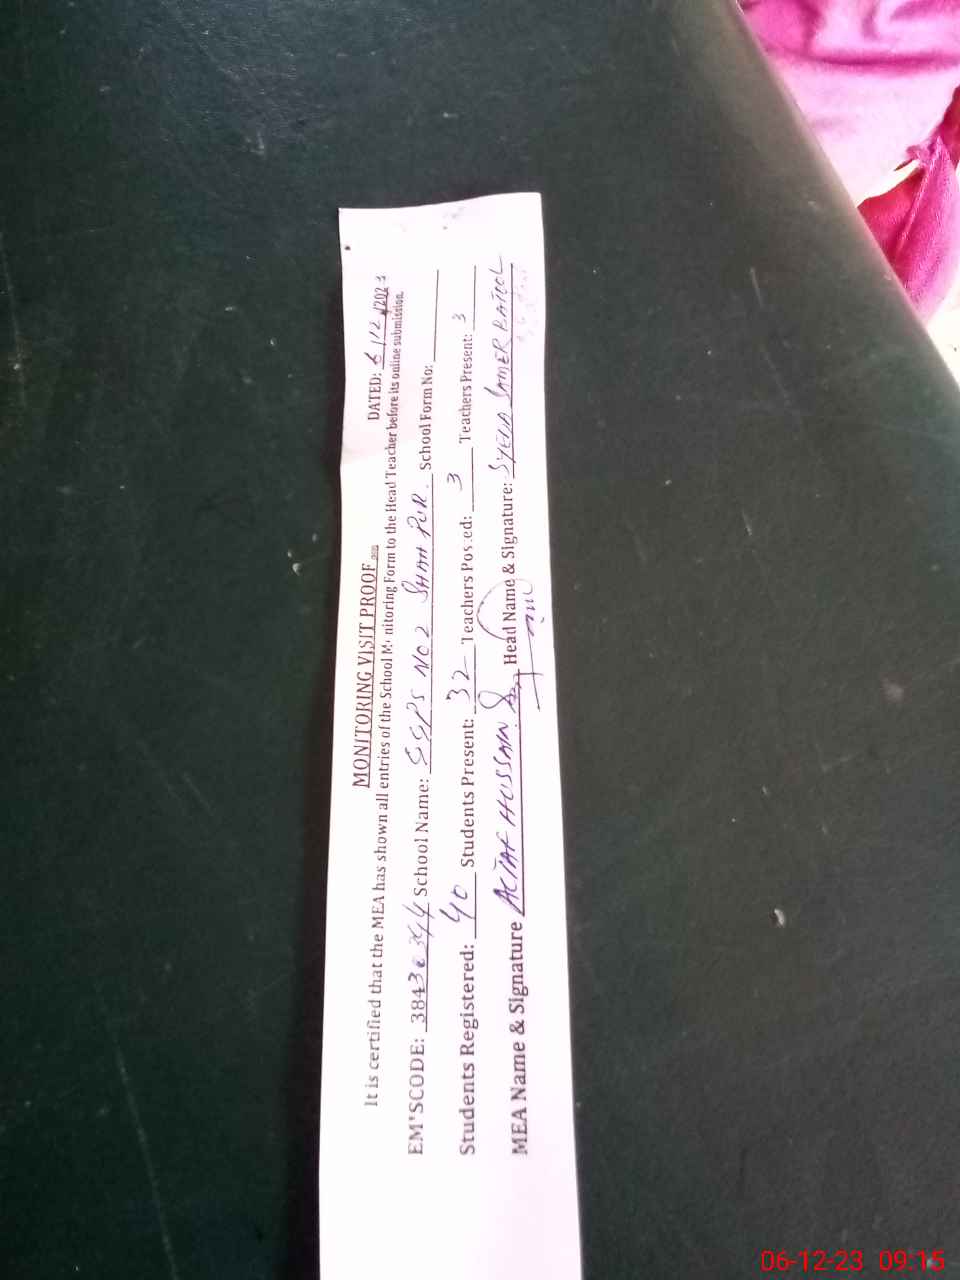 MONITORING VISIT PROOF
DATED: 6/12/2023
It is certified that the MEA has shown all entries of the School Monitoring Form to the Head Teacher before its online submission.
EMISCODE: 38430344 School Name: GGPS NO 2 SHAH PUR. School Form No:
Students Registered: 40 Students Present: 32 Teachers Posted: 3 Teachers Present: 3
MEA Name & Signature ALTAF HUSSAIN Head Name & Signature: SYEDA SAMER BATOOL
06-12-23 09:15